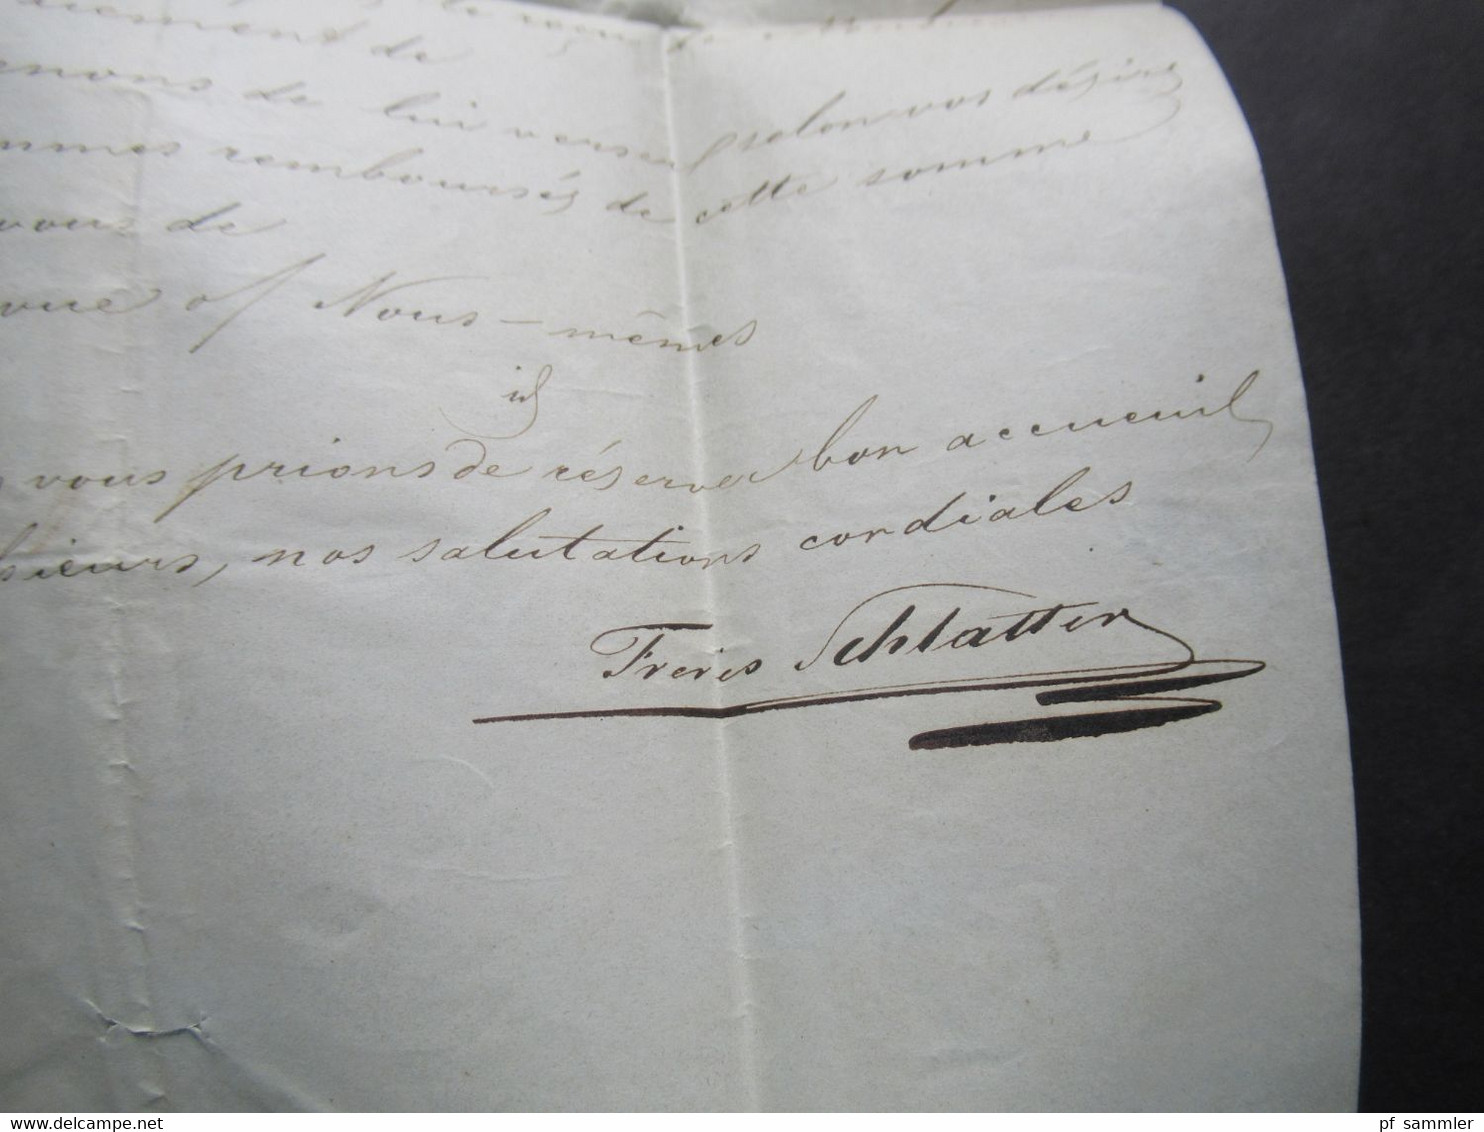 ment de
enons de lui verser selon vos désirs
mmes remboursés de cette somme
vous de
vue o/ Nous-mêmes
vous prions de réserver bon accueil
sieurs, nos salutations cordiales
Freres Schlatter
pf_sammler